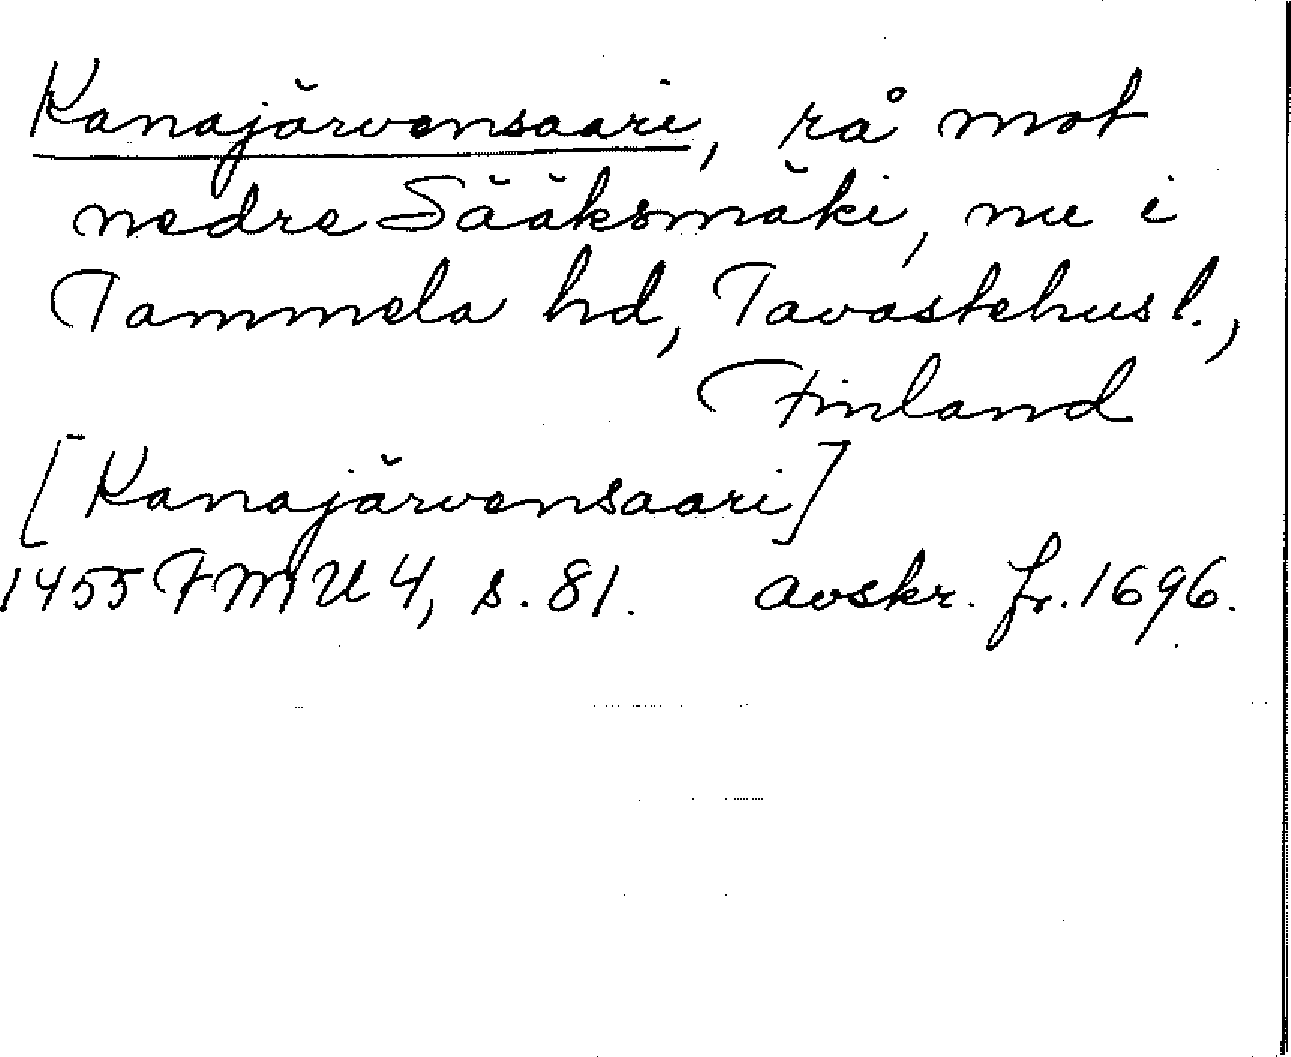 Kanajärvensaari, rå mot
nedre Sääksmäki, nu i
Tammela hd, Tavastehus l.,
Finland
[Kanajärvensaari]
1455 FMU 4, s. 81. avskr. fr. 1696.